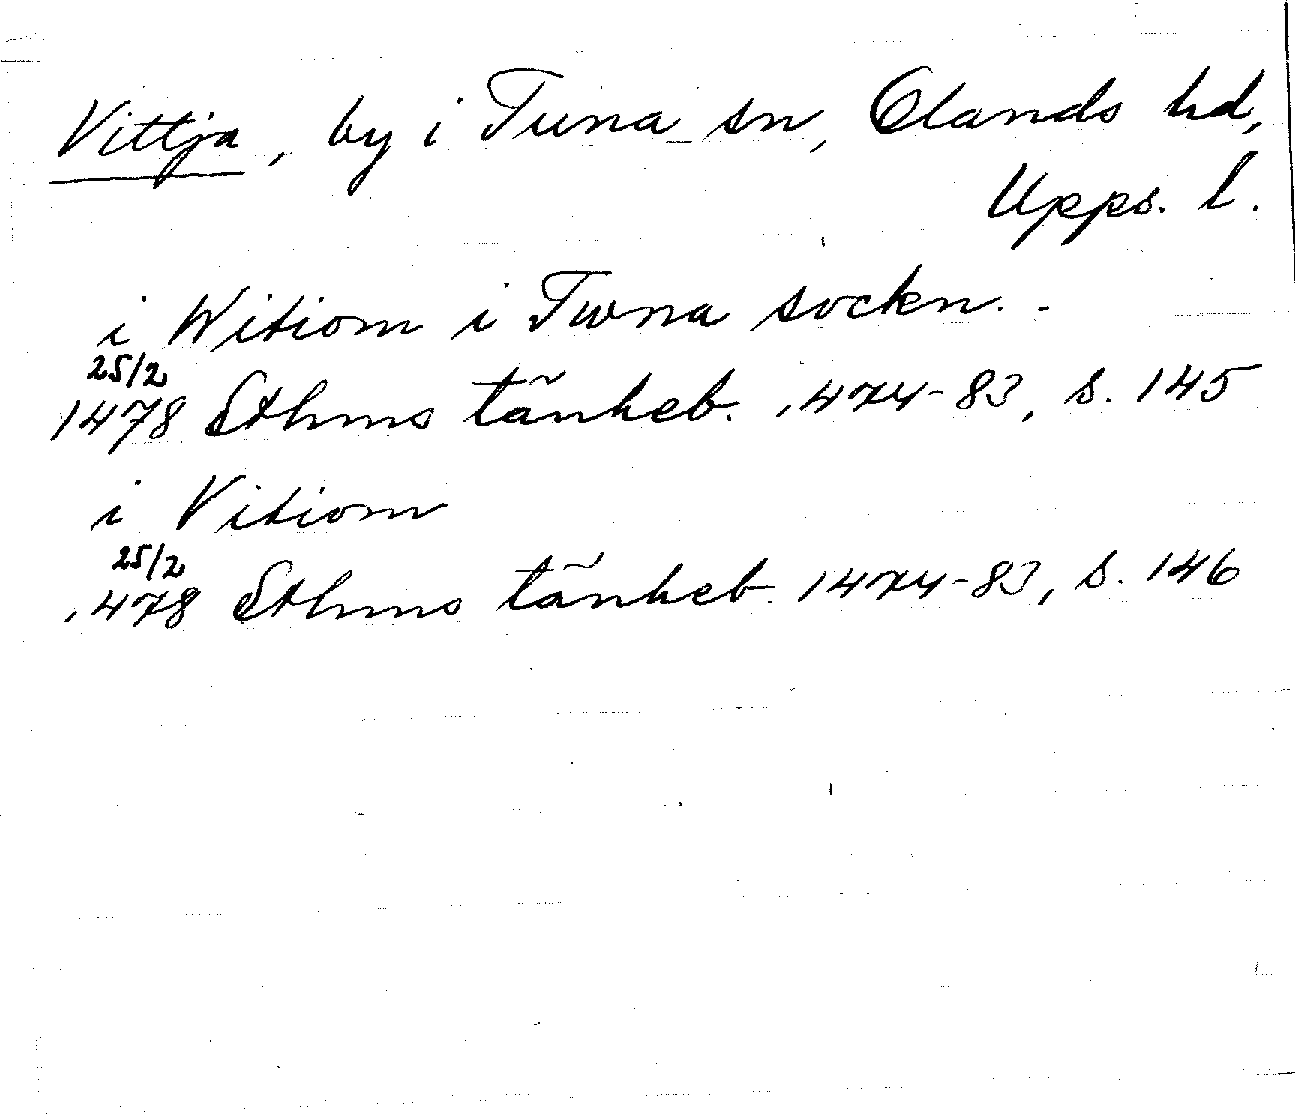 Vittja, by i Tuna sn, Olands hd,
Upps. l.
i Witiom i Twna sockn. -
25/2
1478 Sthms tänkeb. 1474-83, s. 145
i Vitiom
25/2
1478 Sthms tänkeb. 1474-83, s. 146